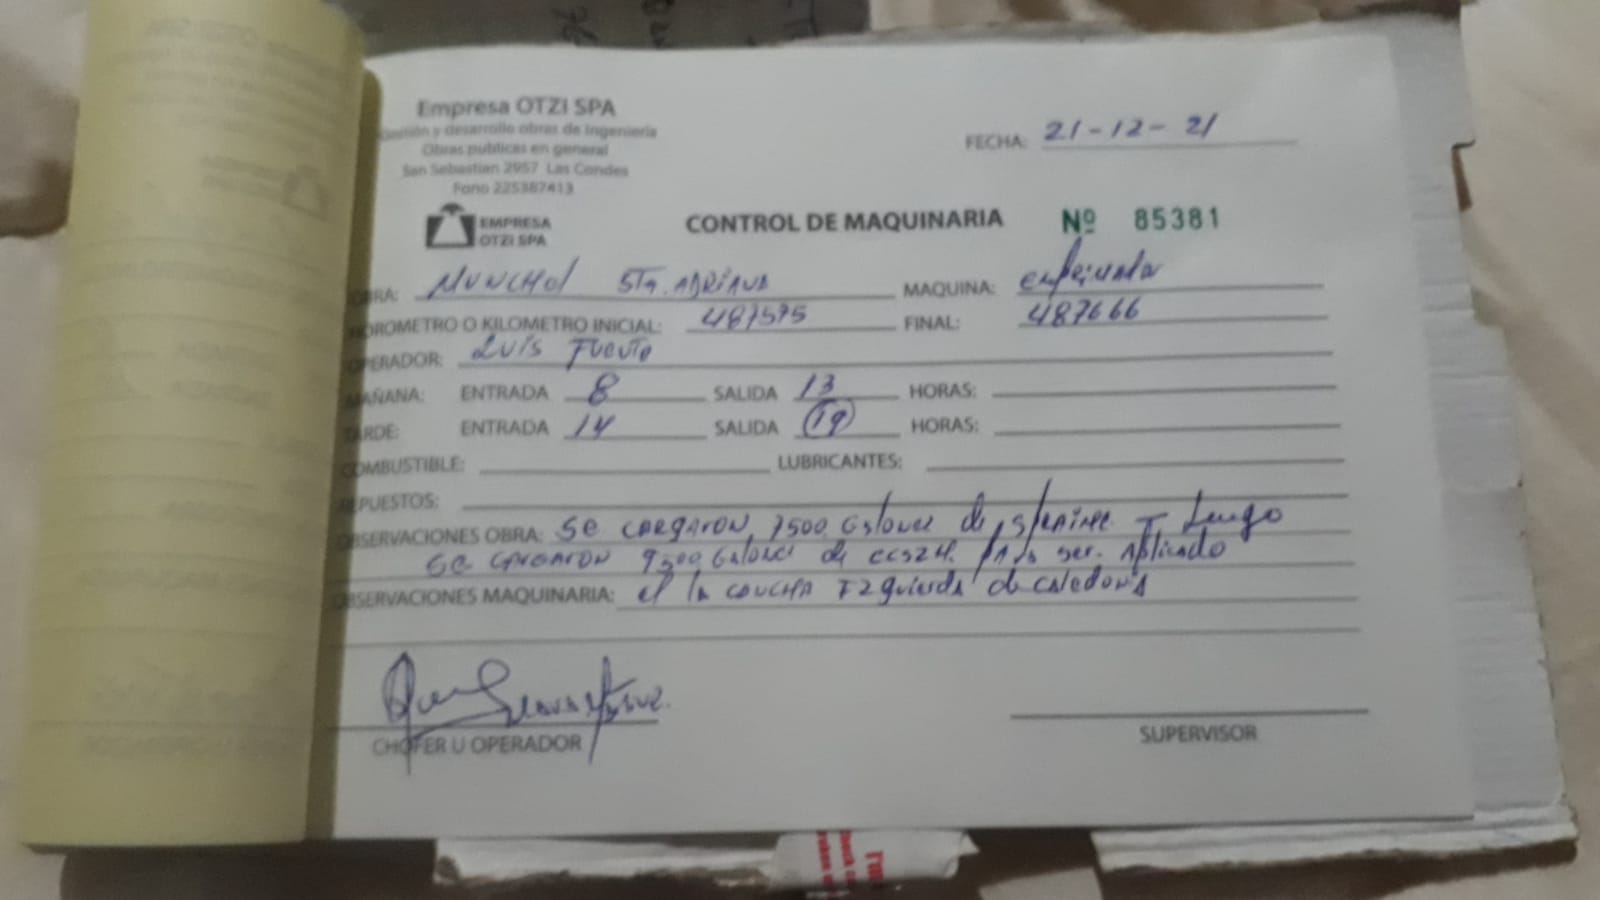 Empresa OTZI SPA
Gestión y desarrollo obras de Ingenieria
Obras publicas en general
San Sebastian 2957 Las Condes
Fono 225387413
FECHA: 21-12-21
EMPRESA
OTZI SPA
CONTROL DE MAQUINARIA Nº 85381
OBRA: Sta. ADRIANA MAQUINA:
HOROMETRO O KILOMETRO INICIAL: 487575 FINAL: 487666
OPERADOR: Luis Fuente
MAÑANA: ENTRADA 8 SALIDA 13 HORAS:
TARDE: ENTRADA 14 SALIDA 19 HORAS:
COMBUSTIBLE: LUBRICANTES:
REPUESTOS:
OBSERVACIONES OBRA: Se CARGARON 7500 Galones de - Luego
Se CARGARON 9500 Galones de ser. Aplicado
OBSERVACIONES MAQUINARIA: el la CANCHA Izquierda de Caledonia
CHOFER U OPERADOR
SUPERVISOR